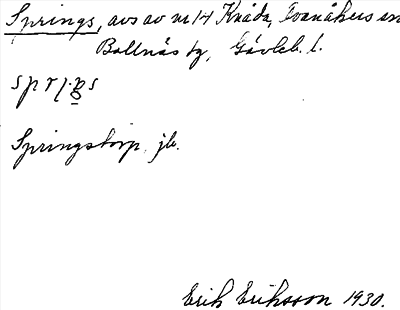 Springs, avs av nr 14 Knåda, Ovanåkers sn
Bollnäs tg, Gävleb. l.
Springstorp, jb.
Erik Eriksson 1930.